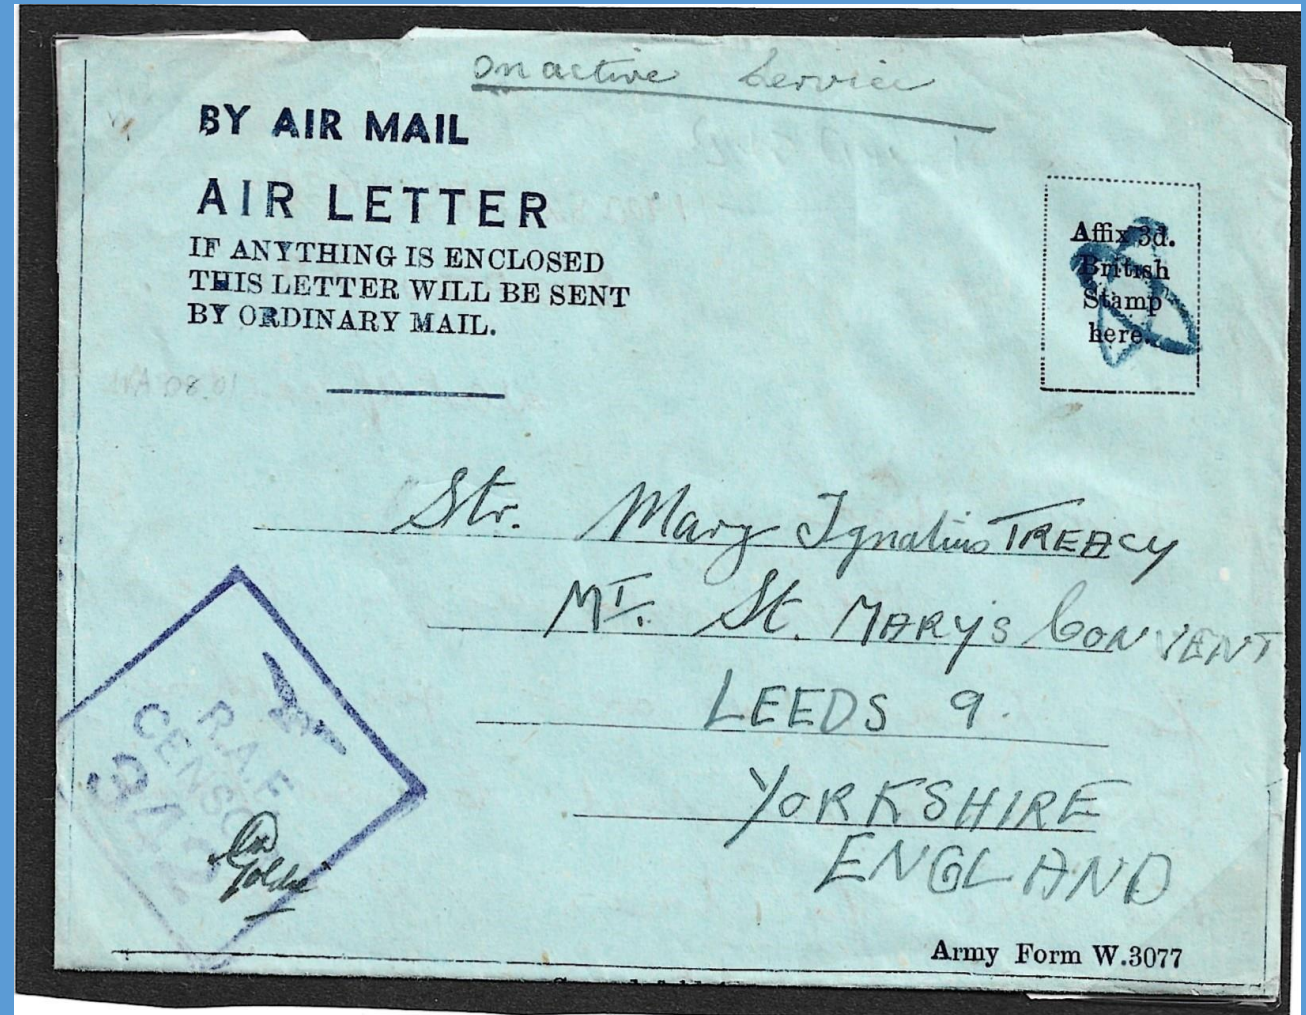 On active Service
BY AIR MAIL
AIR LETTER
IF ANYTHING IS ENCLOSED
THIS LETTER WILL BE SENT
BY ORDINARY MAIL.
Affix 3d.
British
Stamp
here.
Str. Mary Ignatius TREACY
MT. St. MARY'S CONVENT
LEEDS 9.
YORKSHIRE
ENGLAND
R.A.F
CENSO
342
Army Form W.3077